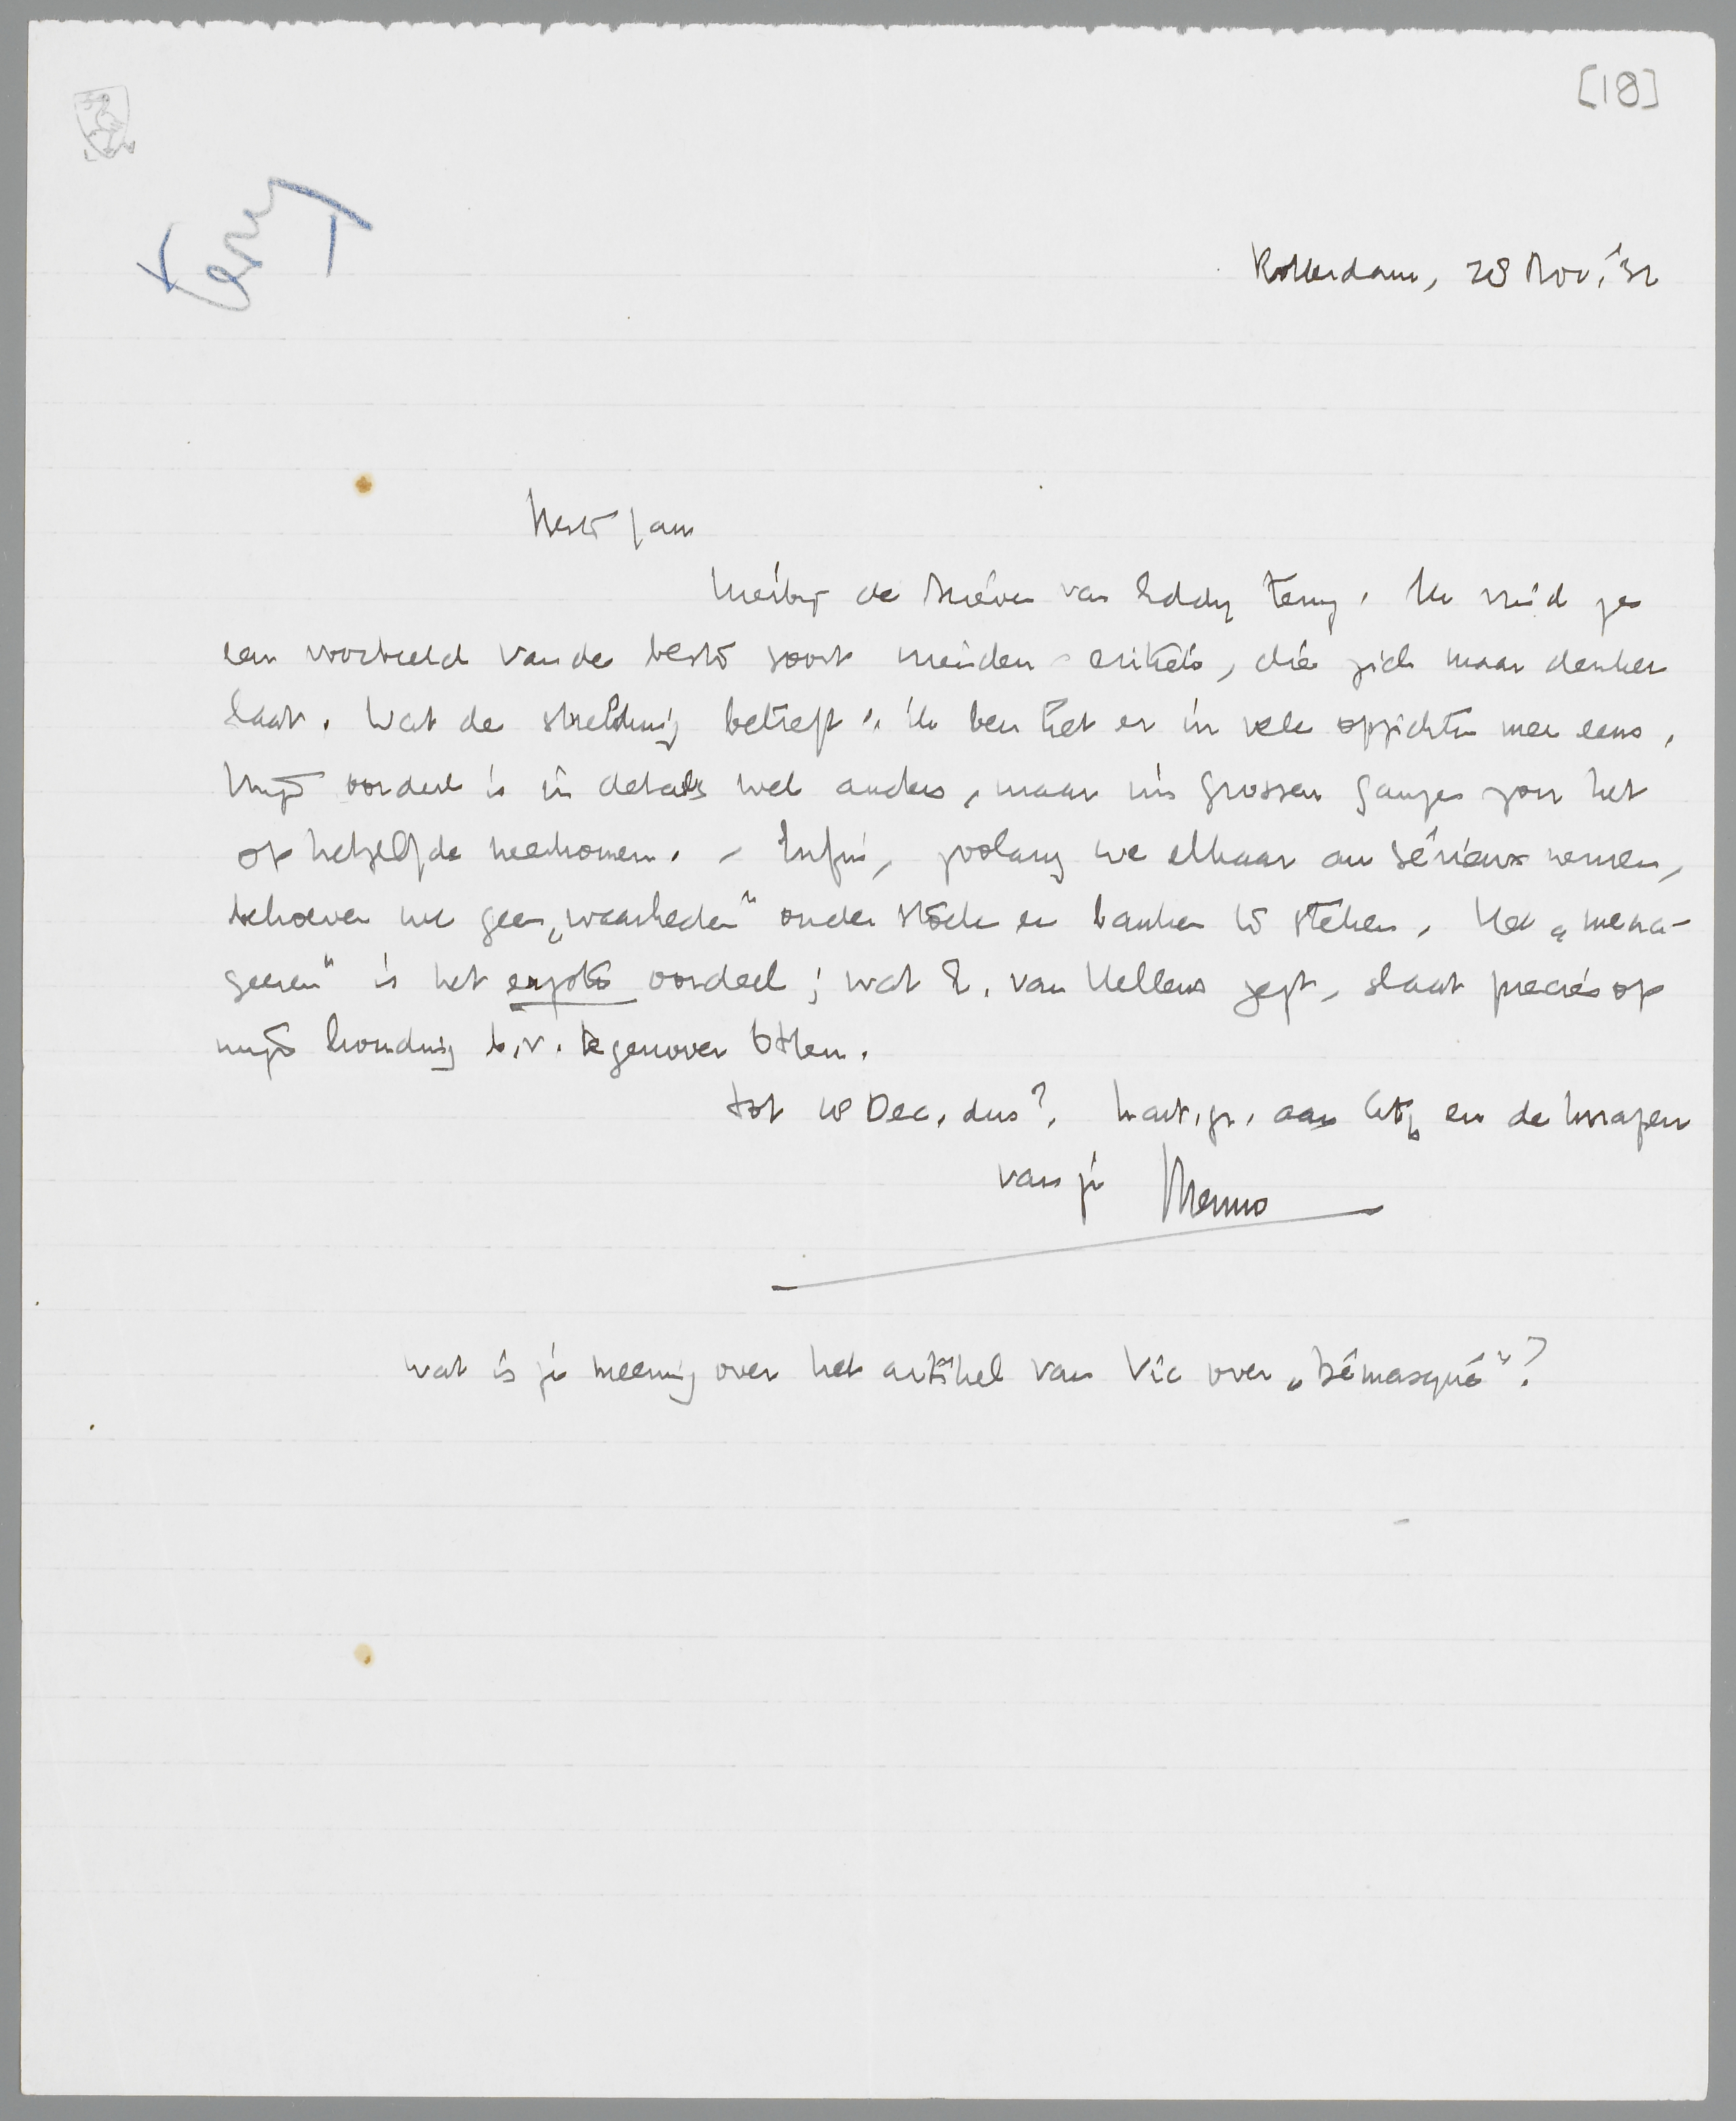 [18]
Terug
Rotterdam, 28 Nov. '32
Beste Jan
Hierbij de brieven van Eddy terug. Ik vind ze
een voorbeeld van de beste soort vrienden-critiek, die zich maar denken
laat. Wat de strekking betreft: ik ben het er in vele opzichten mee eens.
Mijn oordeel is in details wel anders, maar im grossen ganzen zou het
op hetzelfde neerkomen. - Enfin, zoolang we elkaar au sérieux nemen,
behoeven we geen „waarheden" onder stoelen en banken te steken. Het „mena-
geeren" is het ergste oordeel; wat E. van Kelk zegt, slaat precies op
mijn houding b.v. tegenover Otten.
Tot 18 Dec. dus? Hart. gr. aan Atty en de knapen
van je Menno
Wat is je meening over het artikel van Vic over „Démasqué"?